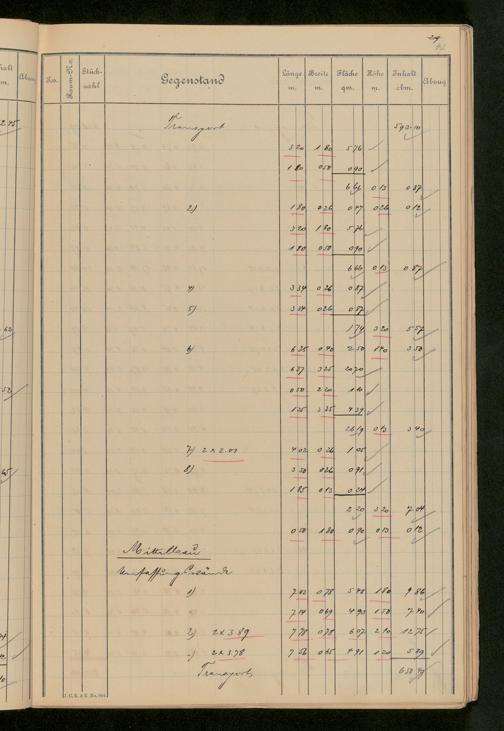 29
No. Raum-No. Stückzahl Gegenstand Länge m. Breite m. Fläche qm. Höhe m. Inhalt cbm. Abzug
Transport 592.10
3 20 1 80 5 76
1 80 0 50 0 90
6 66 0 13 0 87
2) 1 80 0 26 0 47 0 26 0 12
3 20 1 80 5 76
1 80 0 50 0 90
6 66 0 13 0 87
4) 3 34 0 26 0 87
5) 3 34 0 26 0 87
1 74 3 20 5 57
6) 6 25 0 40 2 50 1 40 3 50
6 37 3 25 20 70
0 50 2 20 1 10
1 35 3 25 4 39
26 19 0 13 3 40
7) 2 x 2.01 4 02 0 26 1 05
8) 3 50 0 26 0 91
1 85 0 13 0 24
2 20 3 20 7 04
0 50 1 80 0 90 0 13 0 12
Mittelbau
Umfassungswände
1) 7 02 0 78 5 48 1 80 9 86
7 14 0 69 4 93 1 50 7 40
2) 2 x 3.89 7 78 0 78 6 07 2 10 12 75
2 x 3.78 7 56 0 65 4 91 1 20 5 89
Transport